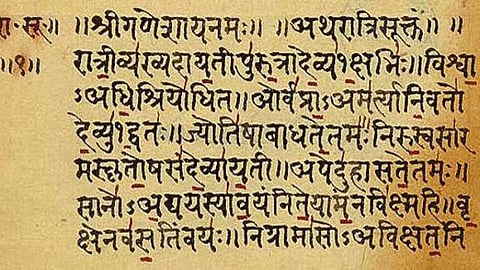 ॥ ॥श्रीगणेशायनमः॥ ॥अथरात्रिसूक्तं॥ ॥
॥१॥
रात्रीव्यख्यदायतीपुरुत्रादेव्य१क्षभिः॥विश्वा
ऽअधिश्रियोधित॥ओर्वप्राऽअमर्त्यानिवतो
देव्यु१द्वतः॥ज्योतिषाबाधतेतमः॥निरुस्वसार
मस्कृतोषसंदेव्यायती॥अपेदुहासतेतमः॥
सानोऽअद्ययस्यावयंनितेयामन्नविक्ष्महि॥वृ
क्षेनवसतिंवयः॥निग्रामासोऽअविक्षतनि